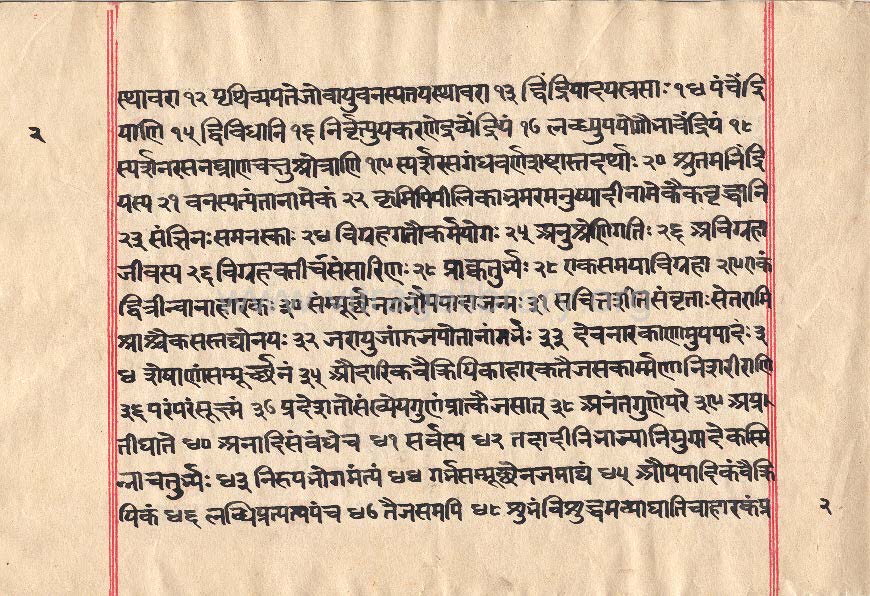 स्थावरा १२ पृथिव्यपतेजोवायुवनस्पतयस्थावरा १३ द्विंद्रियादयस्त्रसाः १४ पंचेंद्रि
२ याणि १५ द्विविधानि १६ निर्वृत्युपकरणेद्रव्येंद्रियं १७ लब्ध्युपयोगौभावेंद्रियं १८
स्पर्शनरसनघ्राणचक्षुश्रोत्राणि १९ स्पर्शरसगंधवर्णशब्दास्तदर्थाः २० श्रुतमनिंद्रि
यस्य २१ वनस्पत्यंतानामेकं २२ कृमिपिपीलिकाभ्रमरमनुष्यादीनामेकैकवृद्धानि
२३ संज्ञिनः समनस्काः २४ विग्रहगतौकर्मयोगः २५ अनुश्रेणिगतिः २६ अविग्रहा
जीवस्य २६ विग्रहवतीर्चसंसारिणः २८ प्राक्चतुर्भ्यः २८ एकसमयाविग्रहा २९ एकं
द्वित्रीन्वानाहारकः ३० संमूर्छनगर्भोपपादाजन्मः ३१ सचित्तशीतसंवृताः सेतरामि
श्राश्चैकसस्तद्योनयः ३२ जरायुजांडजपोतानांगर्भः ३३ देवनारकाणामुपपादः ३
४ शेषाणांसम्मूर्च्छनं ३५ औदारिकवैक्रियिकाहारकतैजसकार्म्मणानिशरीराणि
३६ परंपरंसूक्ष्मं ३७ प्रदेशतोसंख्येयगुणंप्राक्तैजसात् ३८ अनंतगुणेपरे ३९ अप्र
तीघाते ४० अनादिसंबंधेच ४१ सर्वस्य ४२ तदादीनिभाज्यानियुगपदेकस्मि
न्नाचतुर्भ्यः ४३ निरुपभोगमंत्यं ४४ गर्भसम्मूर्छनजमाद्यं ४५ औपपादिकंवैक्रि
यिकं ४६ लब्धिप्रत्ययंच ४७ तैजसमपि ४८ शुभंविशुद्धमव्याघातिचाहारकंप्र २